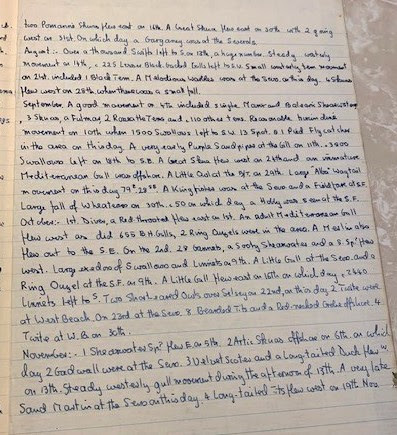 two Pomarine Skuas flew east on 16th. A Great Skua flew east on 30th with 2 going
west on 31st On which day a Garganey was at the Severals
August:- Over a thousand Swifts left to S. on 13th, a huge number. Steady westerly
movement on 14th, 225 Lesser Black-backed Gulls left to S.W. Small westerly tern movement
on 21st. included 1 Black Tern. A Melodious Warbler was at the Sevo. on this day. 4 Skuas
flew west on 28th when there was a small fall.
September. A good movement on 4th included single Manx and Balearic Shearwaters
, 3 Skuas, a Fulmar, 2 Roseate Terns and 110 other terns. Reasonable hirundine
movement on 10th when 1500 Swallows left to S.W. 13 Spot. & 1 Pied Flycatcher
in the area on this day. A very early Purple Sandpiper at the Gull on 11th. 3500
Swallows left on 18th to S.E. A Great Skua flew west on 26th and an immature
Mediterranean Gull was offshore. A Little Owl at the on 29th. Large "Alba" Wagtail
movement on this day A Kingfisher was at the Sevo and a Fieldfare at S.F.
Large fall of Wheatears on 30th. 50 on which day a Hobby was seen at the S.F.
October:- 1st. Diver, a Red throated flew east on 1st. An adult Mediterranean Gull
flew west as did 655 B.H. Gulls, 2 Ring Ouzels were in the area. A Merlin also
flew out to the S.E. On the 2nd. 28 Gannets, a Sooty Shearwater and a S. Sp? flew
west. Large exodus of Swallows and Linnets on 9th. A Little Gull at the Sevo. and a
Ring Ouzel at the S.F. on 9th. A Little Gull flew east on 15th on which day 2640
Linnets left to S. Two Short-eared Owls over Selsey on 22nd, on this day 2 Twite were
at West Beach. On 23rd at the Sevo. 8. Bearded Tits and a Red-necked Grebe offshore. 4
Twite at W.B. on 30th.
November:- 1 Shearwater Sp? flew E. on 5th. 2 Artic Skuas offshore on 6th. on which
day 2 Gadwall were at the Sevo. 3 Velvet Scoter and a Long tailed Duck flew W
on 13th. Steady westerly gull movement during the afternoon of 13th. A very late
Sand Martin at the Sevo on this day. 4 Long-tailed flew west on 19th Nov